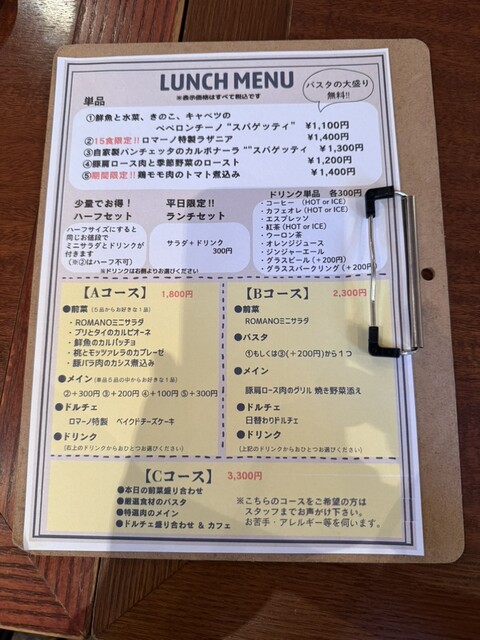 LUNCH MENU
※表示価格はすべて税込です
パスタの大盛り
無料!!
単品
①鮮魚と水菜、きのこ、キャベツの
ペペロンチーノ “スパゲッティ” ¥1,100円
②15食限定!! ロマーノ特製ラザニア ¥1,400円
③自家製パンチェッタのカルボナーラ “”スパゲッティ” ¥1,300円
④豚肩ロース肉と季節野菜のロースト ¥1,200円
⑤期間限定!! 鶏モモ肉のトマト煮込み ¥1,400円
少量でお得！
ハーフセット
ハーフサイズにすると
同じお値段で
ミニサラダとドリンクが
付きます
（※②はハーフ不可）
平日限定!!
ランチセット
サラダ+ドリンク
300円
※ドリンクは右側よりお選びください
ドリンク単品 各300円
・コーヒー （HOT or ICE）
・カフェオレ（HOT or ICE）
・エスプレッソ
・紅茶（HOT or ICE）
・ウーロン茶
・オレンジジュース
・ジンジャーエール
・グラスビール（+200円）
・グラススパークリング（+200円）
【Aコース】 1,800円
●前菜（5品からお好きな1品）
・ROMANOミニサラダ
・ブリとタイのカルピオーネ
・鮮魚のカルパッチョ
・桃とモッツァレラのカプレーゼ
・豚バラ肉のカシス煮込み
●メイン（単品5品の中からお好きな1品）
②+300円 ③+200円 ④+100円 ⑤+300円
●ドルチェ
ロマーノ特製 ベイクドチーズケーキ
●ドリンク
（右上のドリンクからおひとつお選びください）
【Bコース】 2,300円
●前菜
ROMANOミニサラダ
●パスタ
①もしくは③(+200円)から1つ
●メイン
豚肩ロース肉のグリル 焼き野菜添え
●ドルチェ
日替わりドルチェ
●ドリンク
（上記のドリンクからおひとつお選びください）
【Cコース】 3,300円
●本日の前菜盛り合わせ
●厳選食材のパスタ
●特選肉のメイン
●ドルチェ盛り合わせ & カフェ
※こちらのコースをご希望の方は
スタッフまでお声かけ下さい。
お苦手・アレルギー等を伺います。